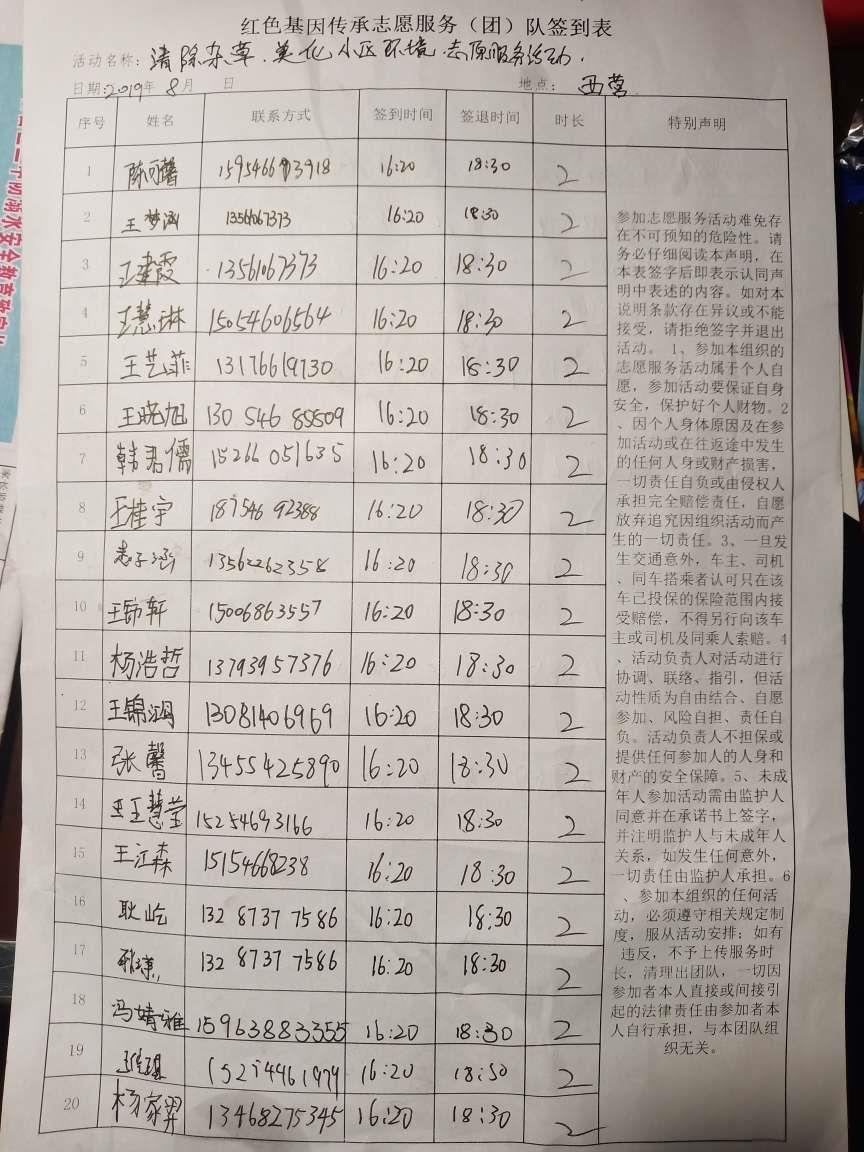 红色基因传承志愿服务（团）队签到表
活动名称：清除杂草.美化小区环境.志愿服务活动.
日期:2019年8月 日 地点: 西营
序号 姓名 联系方式 签到时间 签退时间 时长 特别声明
1 陈可馨 16:20 18:30 2
2 王梦涵 13561067373 16:20 18:30 2
3 王建霞 13561067373 16:20 18:30 2
4 王慧琳 15054606564 16:20 18:30 2
5 王艺菲 13176619730 16:20 18:30 2
6 王晓旭 130 546 85509 16:20 18:30 2
7 韩君儒 15266 051635 16:20 18:30 2
8 王桂宇 187546 92388 16:20 18:30 2
9 13562262358 16:20 18:30 2
10 15006863557 16:20 18:30 2
11 杨浩哲 13793957376 16:20 18:30 2
12 王锦鸿 13081406969 16:20 18:30 2
13 张馨 13455425890 16:20 18:30 2
14 王慧莹 15254693166 16:20 18:30 2
15 王江森 15154668238 16:20 18:30 2
16 耿屹 132 8737 7586 16:20 18:30 2
17 132 8737 7586 16:20 18:30 2
18 冯婧雅 15963883355 16:20 18:30 2
19 16:20 18:30 2
20 杨家羿 13468275345 16:20 18:30 2
参加志愿服务活动难免存
在不可预知的危险性。请
务必仔细阅读本声明，在
本表签字后即表示认同声
明中表述的内容。如对本
说明条款存在异议或不能
接受，请拒绝签字并退出
活动。 1、参加本组织的
志愿服务活动属于个人自
愿，参加活动要保证自身
安全，保护好个人财物。2
、因个人身体原因及在参
加活动或在往返途中发生
的任何人身或财产损害，
一切责任自负或由侵权人
承担完全赔偿责任，自愿
放弃追究因组织活动而产
生的一切责任。3、一旦发
生交通意外，车主、司机
、同车搭乘者认可只在该
车已投保的保险范围内接
受赔偿，不得另行向该车
主或司机及同乘人索赔。4
、活动负责人对活动进行
协调、联络、指引，但活
动性质为自由结合、自愿
参加、风险自担、责任自
负。活动负责人不担保或
提供任何参加人的人身和
财产的安全保障。5、未成
年人参加活动需由监护人
同意并在承诺书上签字，
并注明监护人与未成年人
关系，如发生任何意外，
一切责任由监护人承担。6
、参加本组织的任何活
动，必须遵守相关规定制
度，服从活动安排；如有
违反，不予上传服务时
长，清理出团队，一切因
参加者本人直接或间接引
起的法律责任由参加者本
人自行承担，与本团队组
织无关。